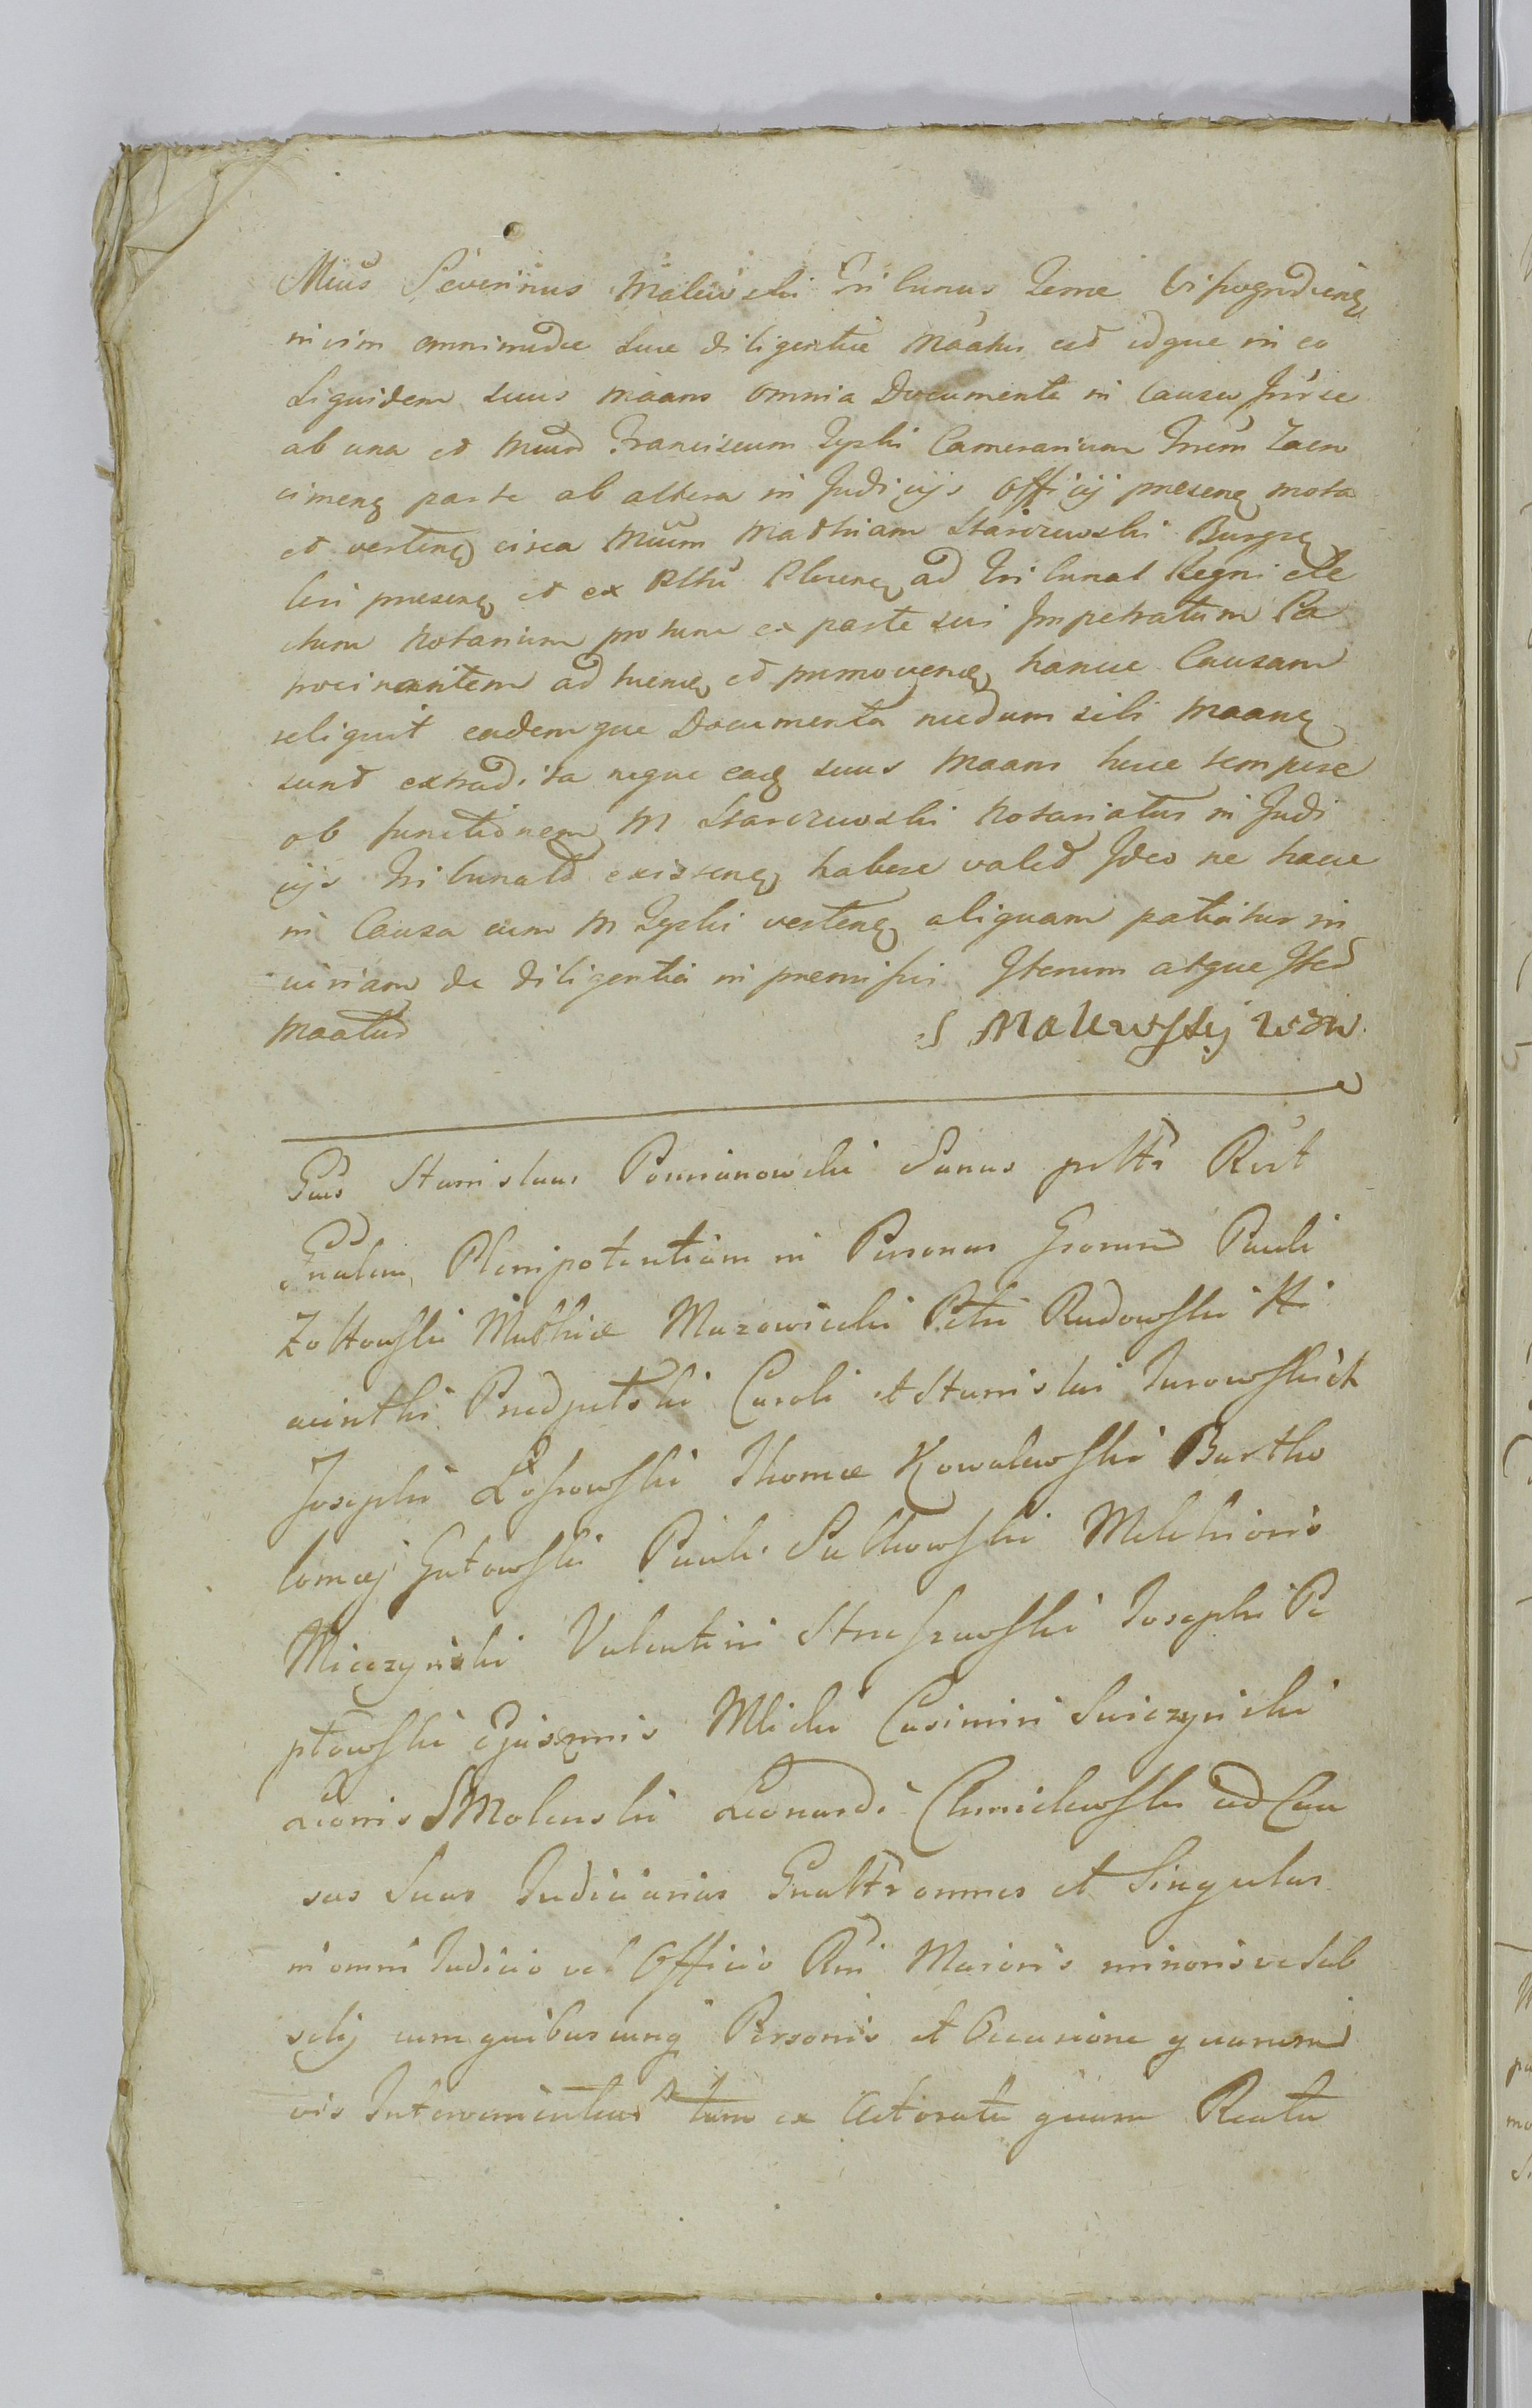 Mcus Severinus Malewski Tribunus Terrae Visogrodieñ
nicim omnimodae suae diligentiae maatus est idque in eo
Siquidem suus maans omnia Documenta in Causa Inter se
ab una et Mcum Franciscum Zyski Camerarium Trrem Zacro
cimeñ parte ab altera in Judicijs Officij preseñ mota
et verteñ circa Mcum Mathiam Starczewski Burgra
bri preseñ et ex Pltu Ploceñ ad Tribunal Regni ele
ctum Notarium protunc ex parte sui Impetratum Pa
trocinantem ad tueñ et promoveñ hancce Causam
reliquit eademque Documenta nedum sibi maañ
sunt extradita neque eaq suus maans hocce tempore
ob functionem M Starczewski Notariatus in Judi
cijs Tribunald existeñ habere valed Ideo ne hacce
in Causa cum M Zyski verteñ aliquam patiatur in
curiam de diligentia in premissi Iterum atque Ited
maatus
S Malewsky WZW
Gsus Stanislaus Pomianowski Sanus pltr Rcit
Gnalem Plenipotentiam in Personas Gsorum Pauli
Zołtowski Mathiae Mazowiecki Petri Rudowski Hi
acinthi Przedpełski Caroli et Stanislai Jurowskich
Josephi Lossowski Thomae Kowalewski Bartho
lomaej Gutowski Pauli Sułkowski Melchioris
Mieczynski Valentini Struszewski Josephi Pe
płowski Ejusmnis Mlicki Casimiri Swiezynski
Leonis Smolenski Leonardi Chmielewski ad Cau
sas Suas Judiciarias Gnaltr omnes et Singulas
in omni Judicio vel Officio Rni Maioris minorisve Sub
selij cum quibuscunq Personis et Occasione quarum
vis Intervenientes tam ex Actoratu quam Reatu